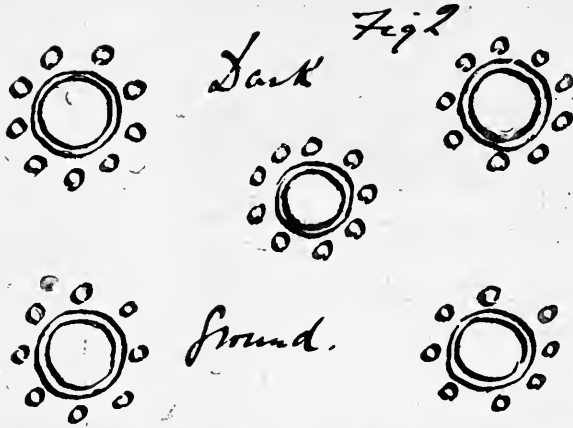 Fig 2
Dark
Ground.